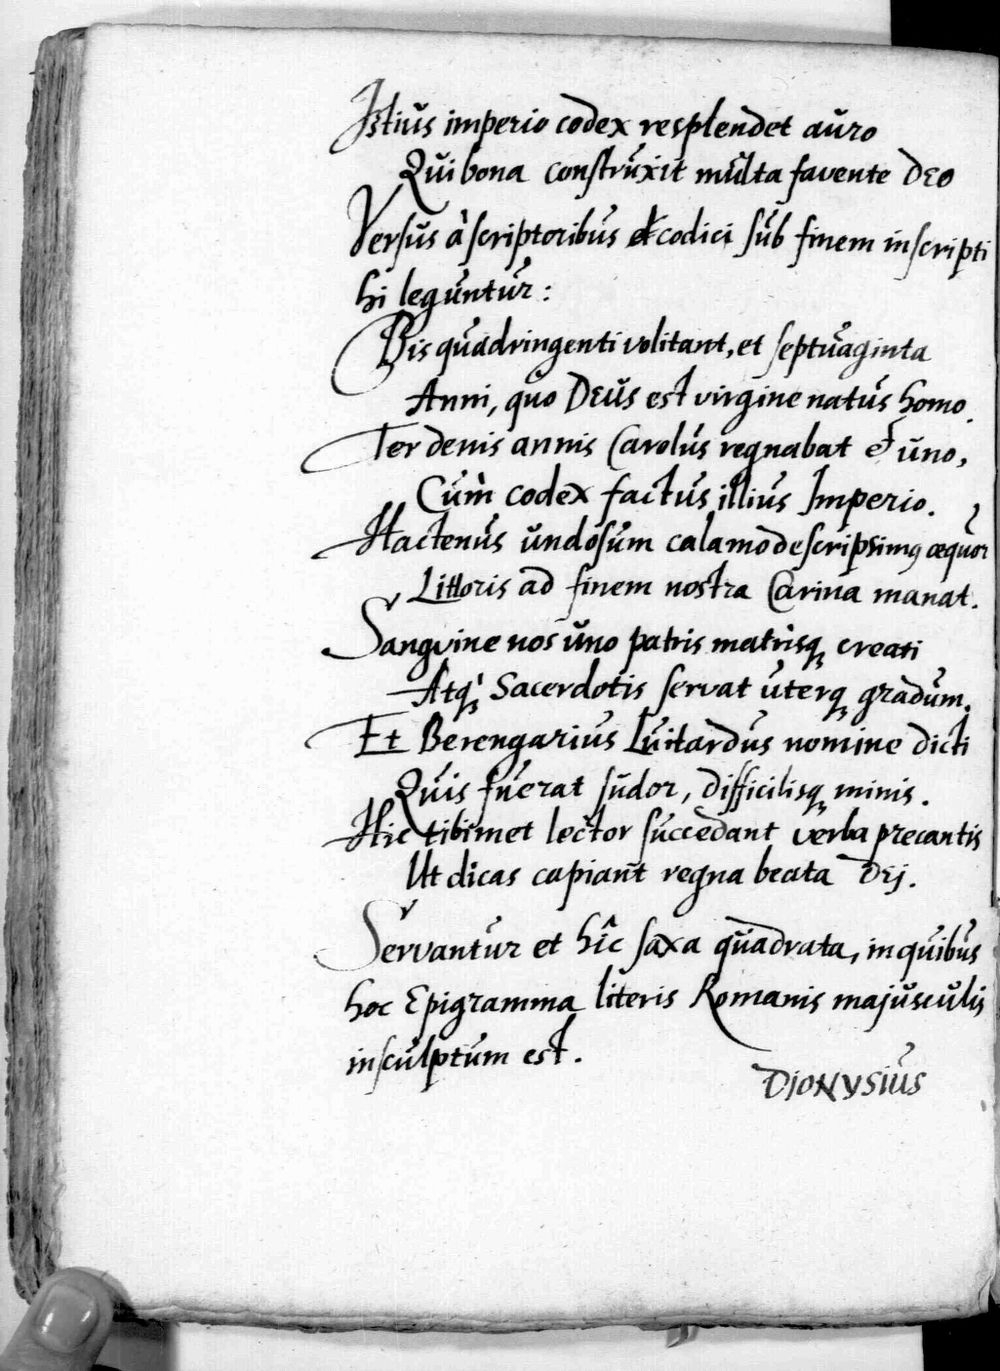 Istius imperio codex resplendet auro
Qui bona construxit multa favente Deo
Versus à scriptoribus codici sub finem inscripti
hi leguntur:
Bis quadringenti volitant, et septuaginta
Anni, quo Deus est virgine natus homo.
Ter denis annis Carolus regnabat et uno,
Cùm codex factus illius Imperio.
Hactenus undosum calamo descripsimus æquor
Littoris ad finem nostra Carina manat.
Sangvine nos uno patris matrisq; creati
Atq; Sacerdotis servat uterq; gradum.
Et Berengarius Luitardus nomine dicti
Quis fuerat sudor, difficilisq; minis.
Hic tibimet lector succedant verba precantis
Ut dicas capiant regna beata Dej.
Servantur et hîc saxa quadrata, in quibus
hoc Epigramma literis Romanis majusculis
insculptum est.
DIONYSIUS